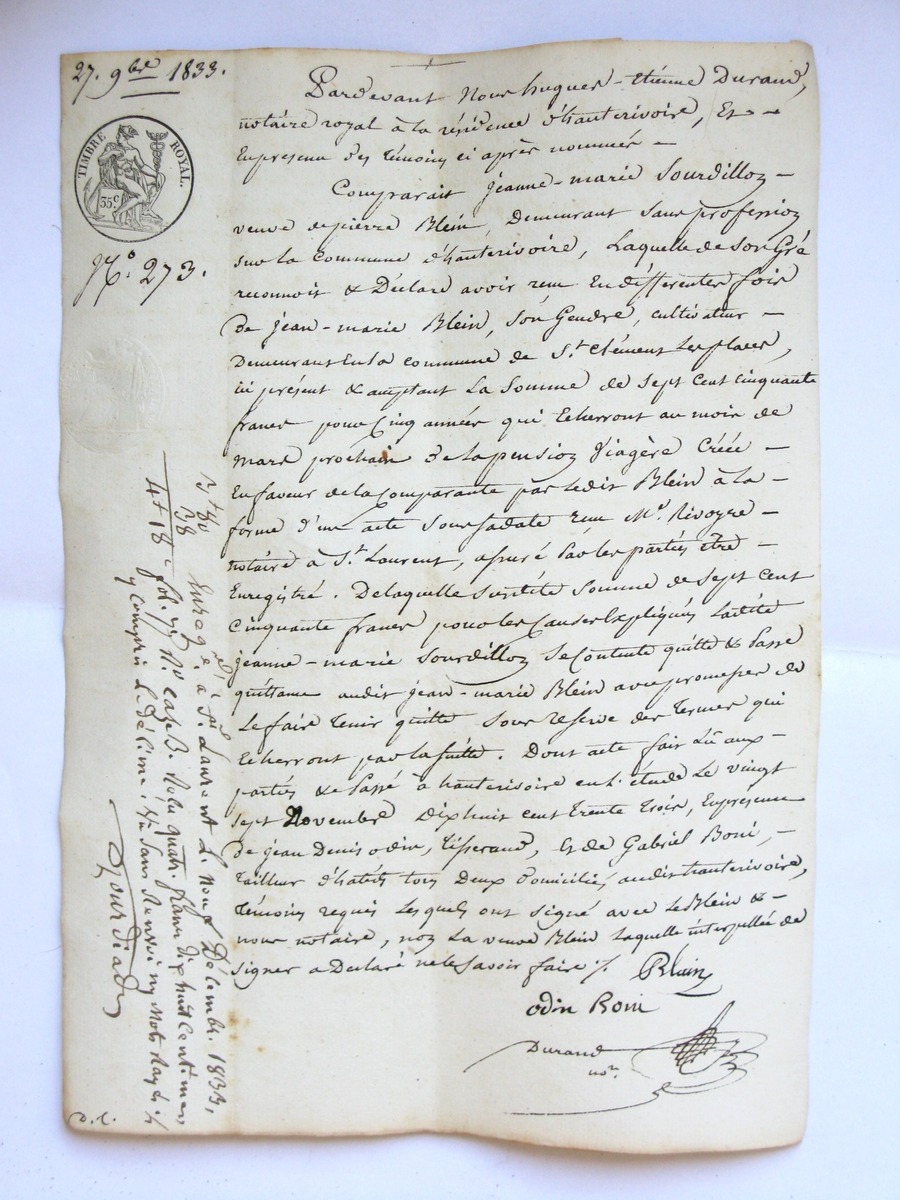 27. 9bre 1833.
TIMBRE ROYAL.
35c
N° 273.
Pardevant Nous hugues-Etienne Durand,
notaire royal à la résidence d'hauterivoire, Et
En presence des témoins ci après nommés
Comparait jeanne-marie Sourdilloz
veuve de pierre Blein, Demeurant sans professioz
sur la Commune d'hauterivoire, Laquelle de son Gré
reconnoit & Déclare avoir reçu En differentes fois
De jean-marie Blein, Son Gendre, cultivateur
Demeurant En la commune de St. Clément Les places,
ici présent & acceptant La Somme de sept cent cinquante
francs pour Cinq années qui Echerront au mois de
Mars prochain De la pensioz Viagère Créée
En faveur de la Comparante par ledit Blein à la
forme d'un acte Sous sa date reçu Me. Rivoyre
notaire à St. Laurent, assuré Par les parties être
Enregistré. De laquelle susdite Somme de Sept cent
Cinquante francs pour les Causes Expliquées Ladite
jeanne-marie Sourdilloz Se Contente quitte & Passe
quittance audit jean-marie Blein avec promesse de
Le faire tenir quitte Sous reserve des Termes qui
Echerront par la suitte. Dont acte fait Lû aux
parties & Passé à hauterivoire en l'étude Le vingt
sept Novembre Dix huit cent trente Trois, En presence
De jean Denis odin, Tisserand, Et de Gabriel Boni,
Tailleur d'habits tous Deux domiciliés audit hauterivoire,
Témoins requis Lesquels ont signé avec Le Blein &
nous notaire, noz La veuve Blein Laquelle interpellée de
signer a Déclaré ne le savoir faire ./.
Blain
odin Boni
Durand
nore.
38
4 + 18
Enregé. à St. Laurent Le neuf Décembre 1833,
fol. Ro. case 3. Reçu quatre francs dix huit Centimes,
y Compris le Décime. Sans Renvoi ny Mots Rayés ./.
D. C.